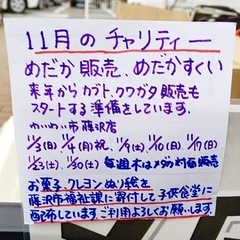 11月のチャリティー
めだか販売、めだかすくい
来年からカブト、クワガタ販売も
スタートする準備をしています。
わいわい市藤沢店
11/3(日)11/4(月)祝、11/9(土)11/10(日)11/17(日)
11/23(土)11/30(土)毎週木はメダカ村毎販売
お菓子、クレヨンぬり絵を
藤沢市福祉課に寄付して子供食堂に
配布していますご利用よろしくお願いします。